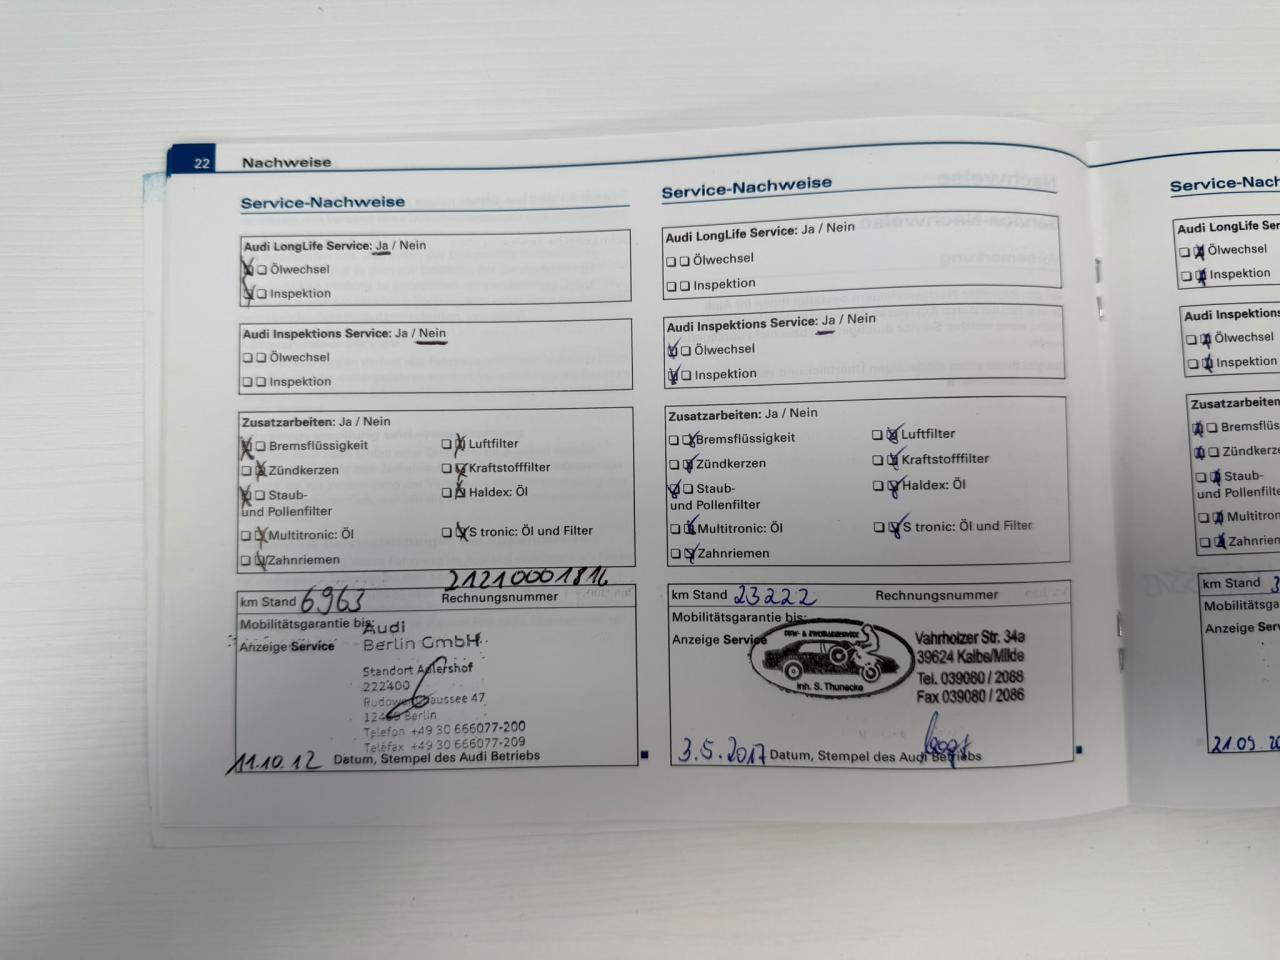 22 Nachweise
Service-Nachweise
Audi LongLife Service: Ja / Nein
Ölwechsel
Inspektion
Audi Inspektions Service: Ja / Nein
Ölwechsel
Inspektion
Zusatzarbeiten: Ja / Nein
Bremsflüssigkeit
Luftfilter
Zündkerzen
Kraftstofffilter
Staub-
und Pollenfilter
Haldex: Öl
Multitronic: Öl
S tronic: Öl und Filter
Zahnriemen
21210001816
km Stand 6963
Rechnungsnummer
Mobilitätsgarantie bis:
Anzeige Service
Audi
Berlin GmbH
Standort Adlershof
222400
Berlin
Telefon +49 30 666077-200
Telefax +49 30 666077-209
11.10.12 Datum, Stempel des Audi Betriebs
Service-Nachweise
Audi LongLife Service: Ja / Nein
Ölwechsel
Inspektion
Audi Inspektions Service: Ja / Nein
Ölwechsel
Inspektion
Zusatzarbeiten: Ja / Nein
Bremsflüssigkeit
Luftfilter
Zündkerzen
Kraftstofffilter
Staub-
und Pollenfilter
Haldex: Öl
Multitronic: Öl
S tronic: Öl und Filter
Zahnriemen
km Stand 23222
Rechnungsnummer
Mobilitätsgarantie bis:
Anzeige Service
PKW- & ZWEIRADSERVICE
Inh. S. Thunecke
Vahrholzer Str. 34a
39624 Kalbe/Milde
Tel. 039080 / 2088
Fax 039080 / 2086
3.5.2017 Datum, Stempel des Audi Betriebs
Service-Nach
Audi LongLife Se
Ölwechsel
Inspektion
Audi Inspektions
Ölwechsel
Inspektion
Zusatzarbeiten
Bremsflüs
Zündkerze
Staub-
und Pollenfilter
Multitron
Zahnrien
km Stand 3
Mobilitätsga
Anzeige Serv
21.09.20